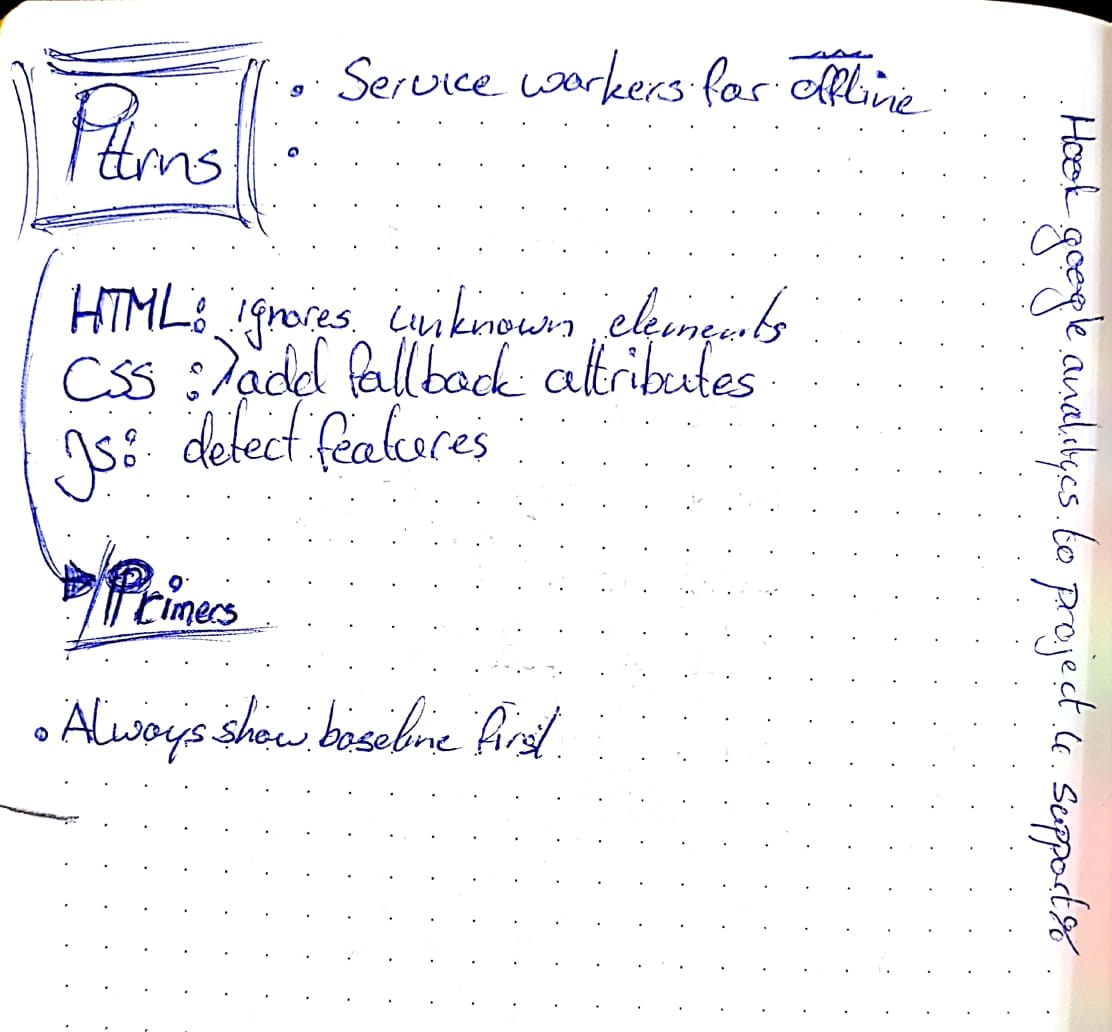 Pttrns
• Service workers for offline
•
HTML: ignores unknown elements
CSS: add fallback attributes
JS: detect features
Primers
• Always show baseline first
Hook google analitycs to project Support%